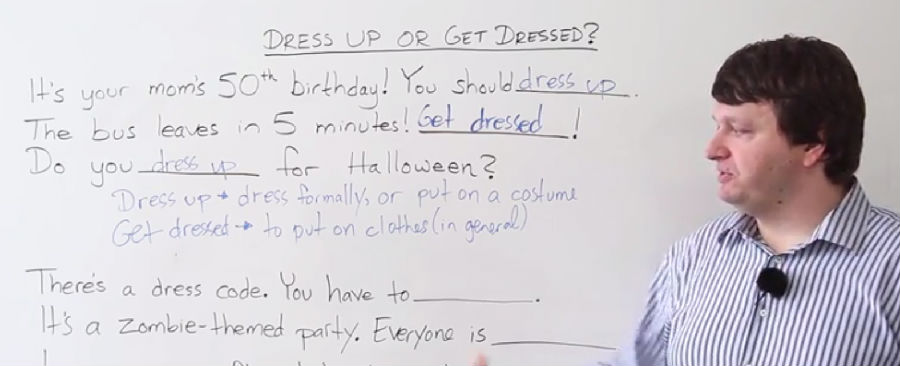 DRESS UP OR GET DRESSED?
It's your mom's 50th birthday! You should dress up.
The bus leaves in 5 minutes! Get dressed!
Do you dress up for Halloween?
Dress up → dress formally, or put on a costume
Get dressed → to put on clothes (in general)
There's a dress code. You have to ________.
It's a zombie-themed party. Everyone is ________